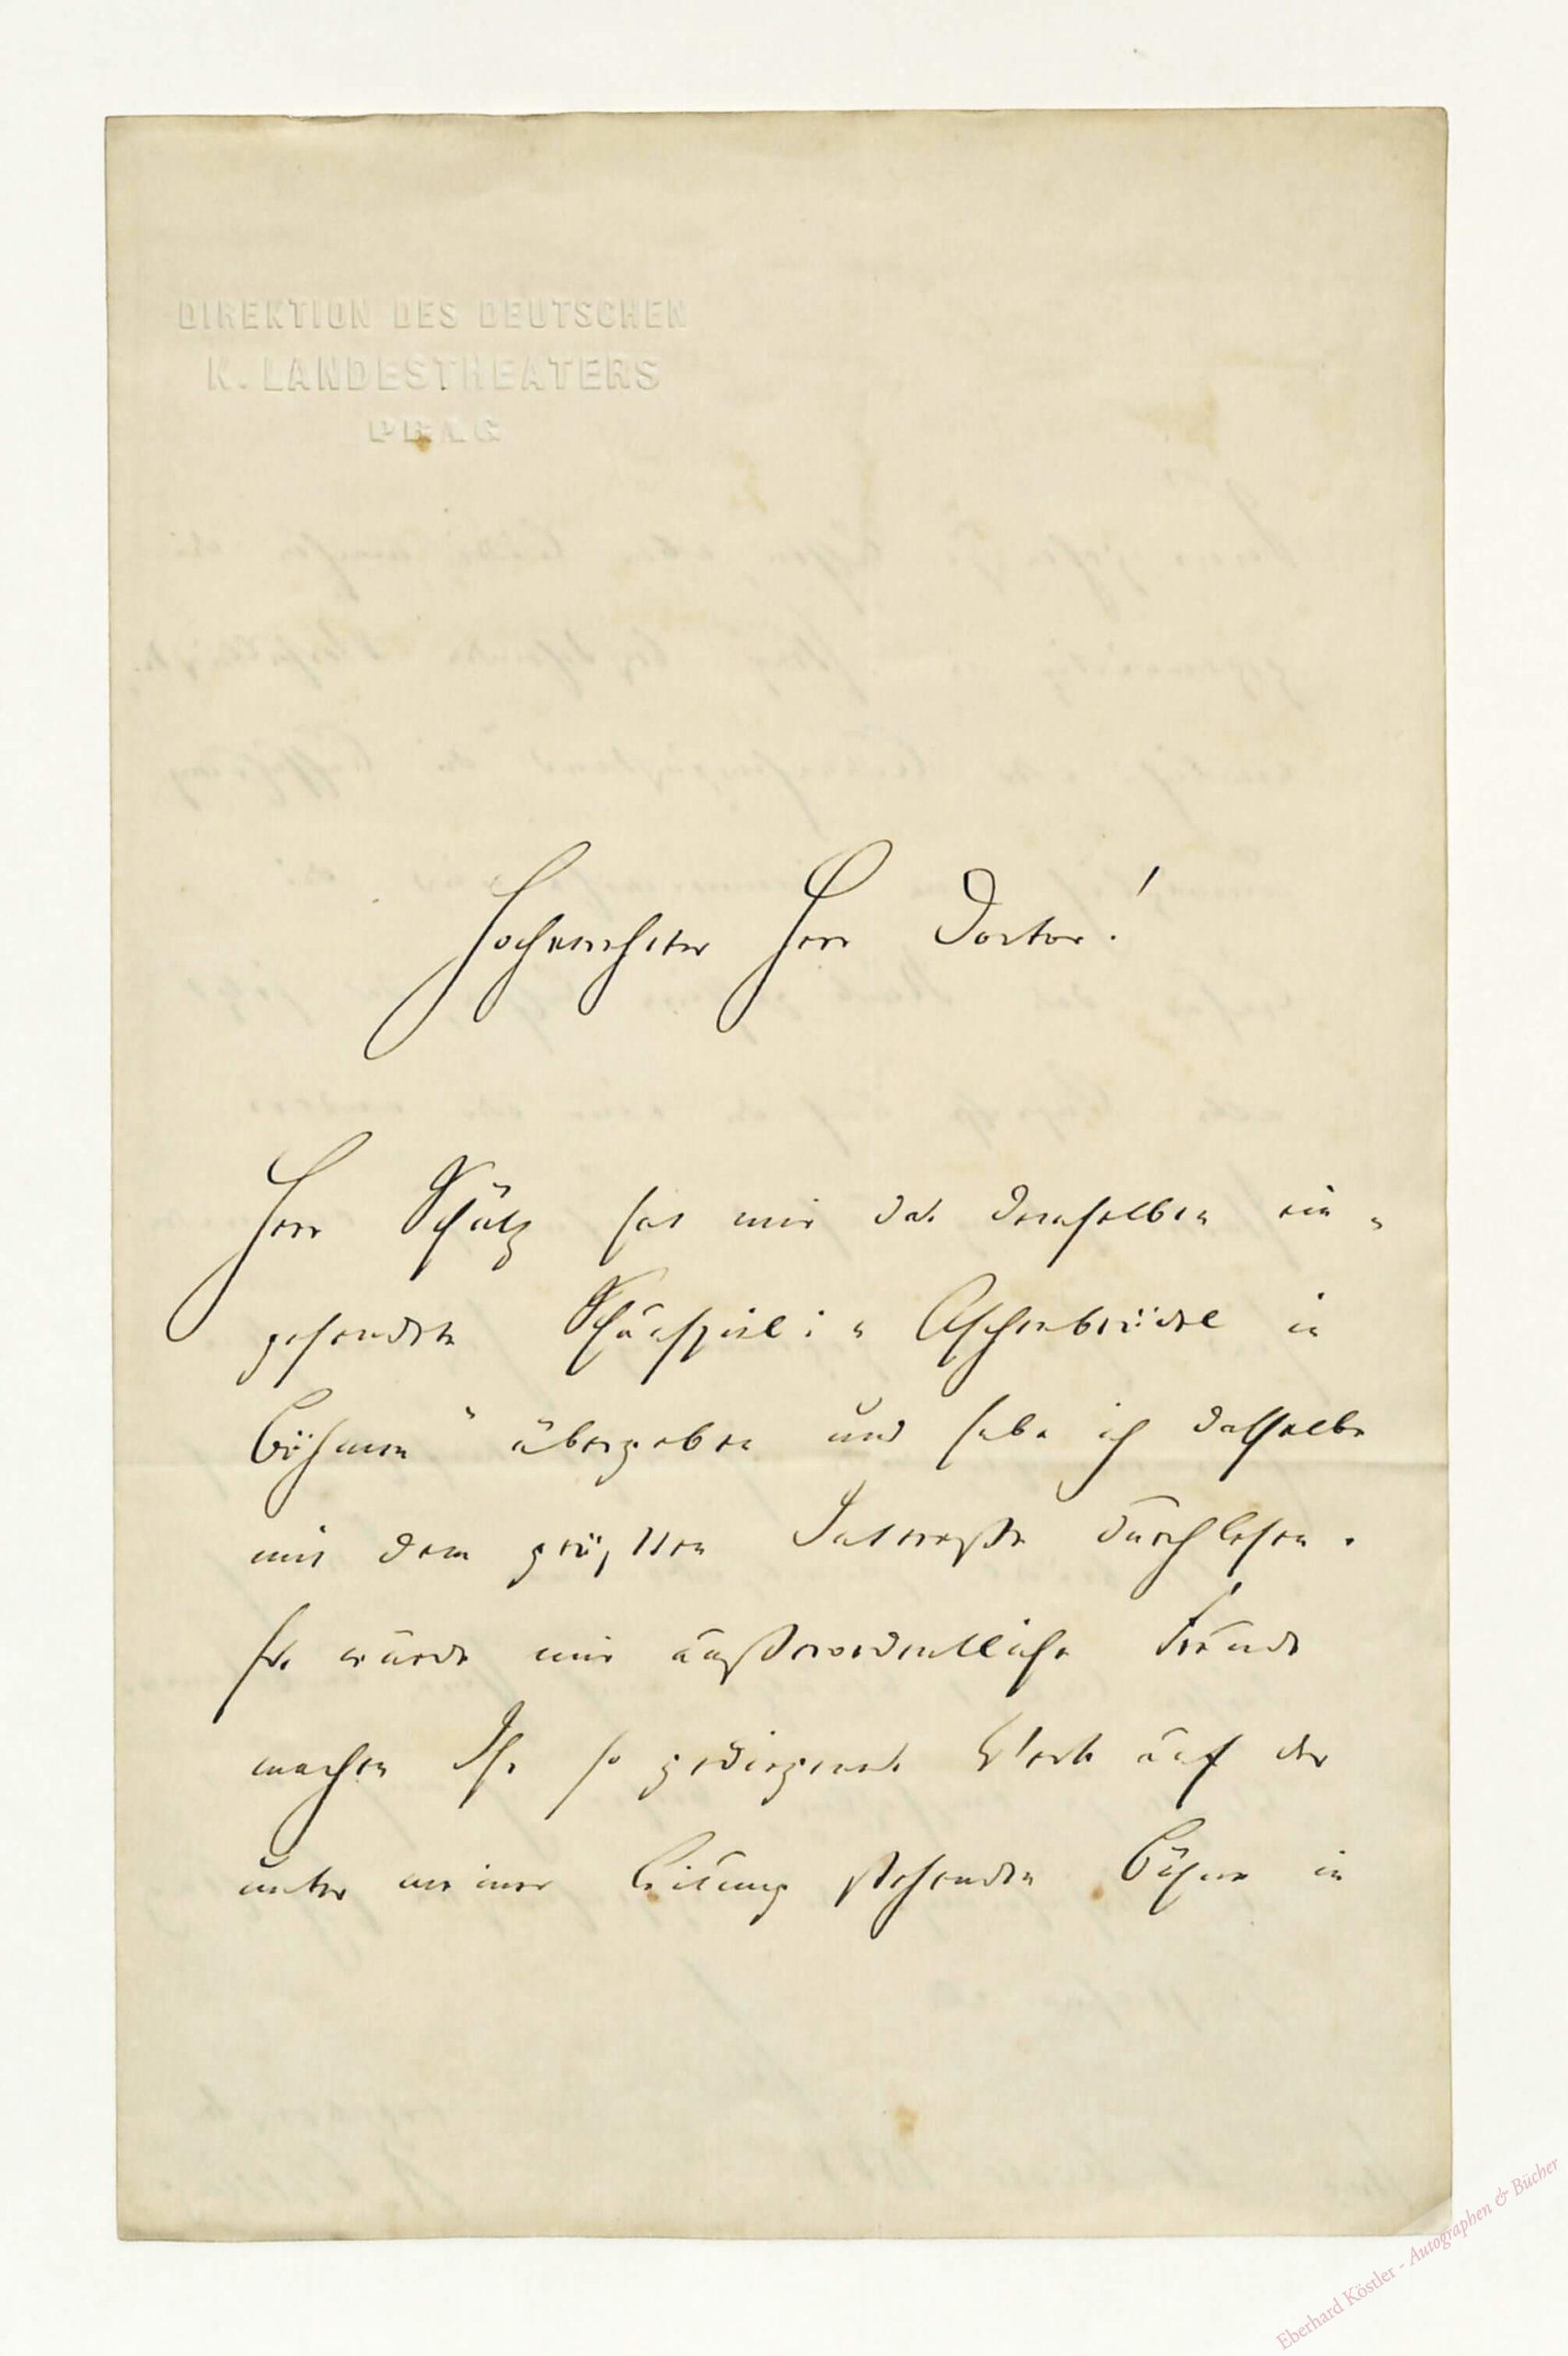 DIREKTION DES DEUTSCHEN
K. LANDESTHEATERS
PRAG
Hochverehrter Herr Doctor!
Herr Schütz hat mir das demselben ein-
gesendete Schauspiel: „Aschenbrödel in
Böhmen“ übergeben und habe ich dasselbe
mit dem größten Interesse durchlesen.
Es würde mir außerordentliche Freude
machen Ihr so gediegenes Werk auf der
unter meiner Leitung stehenden Bühne in
Eberhard Köstler - Autographen & Bücher